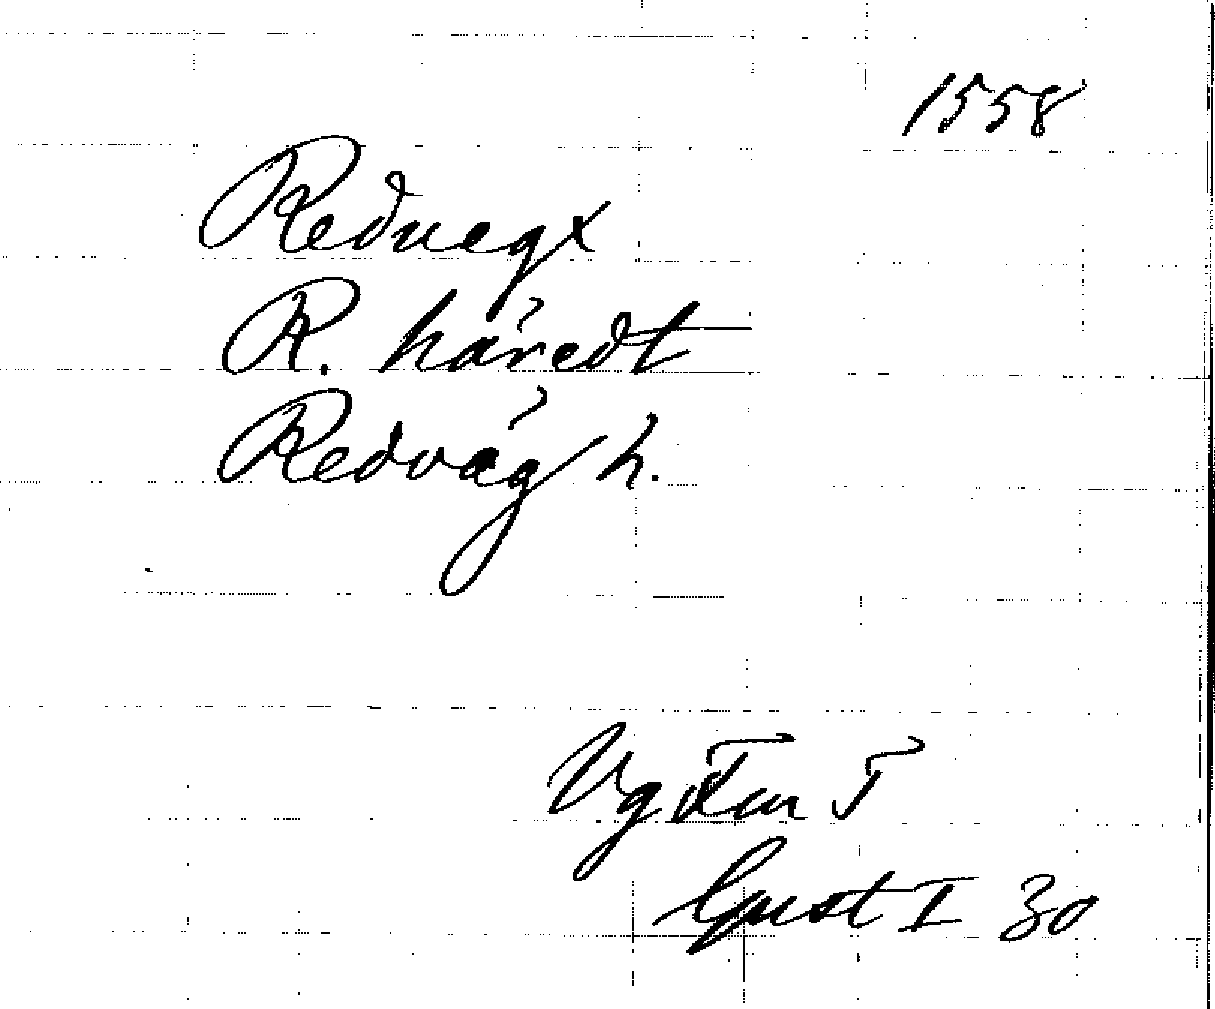 1558
Reduegx
R. håredt
Redvåg h.
Vg Tun T
Gust I 30